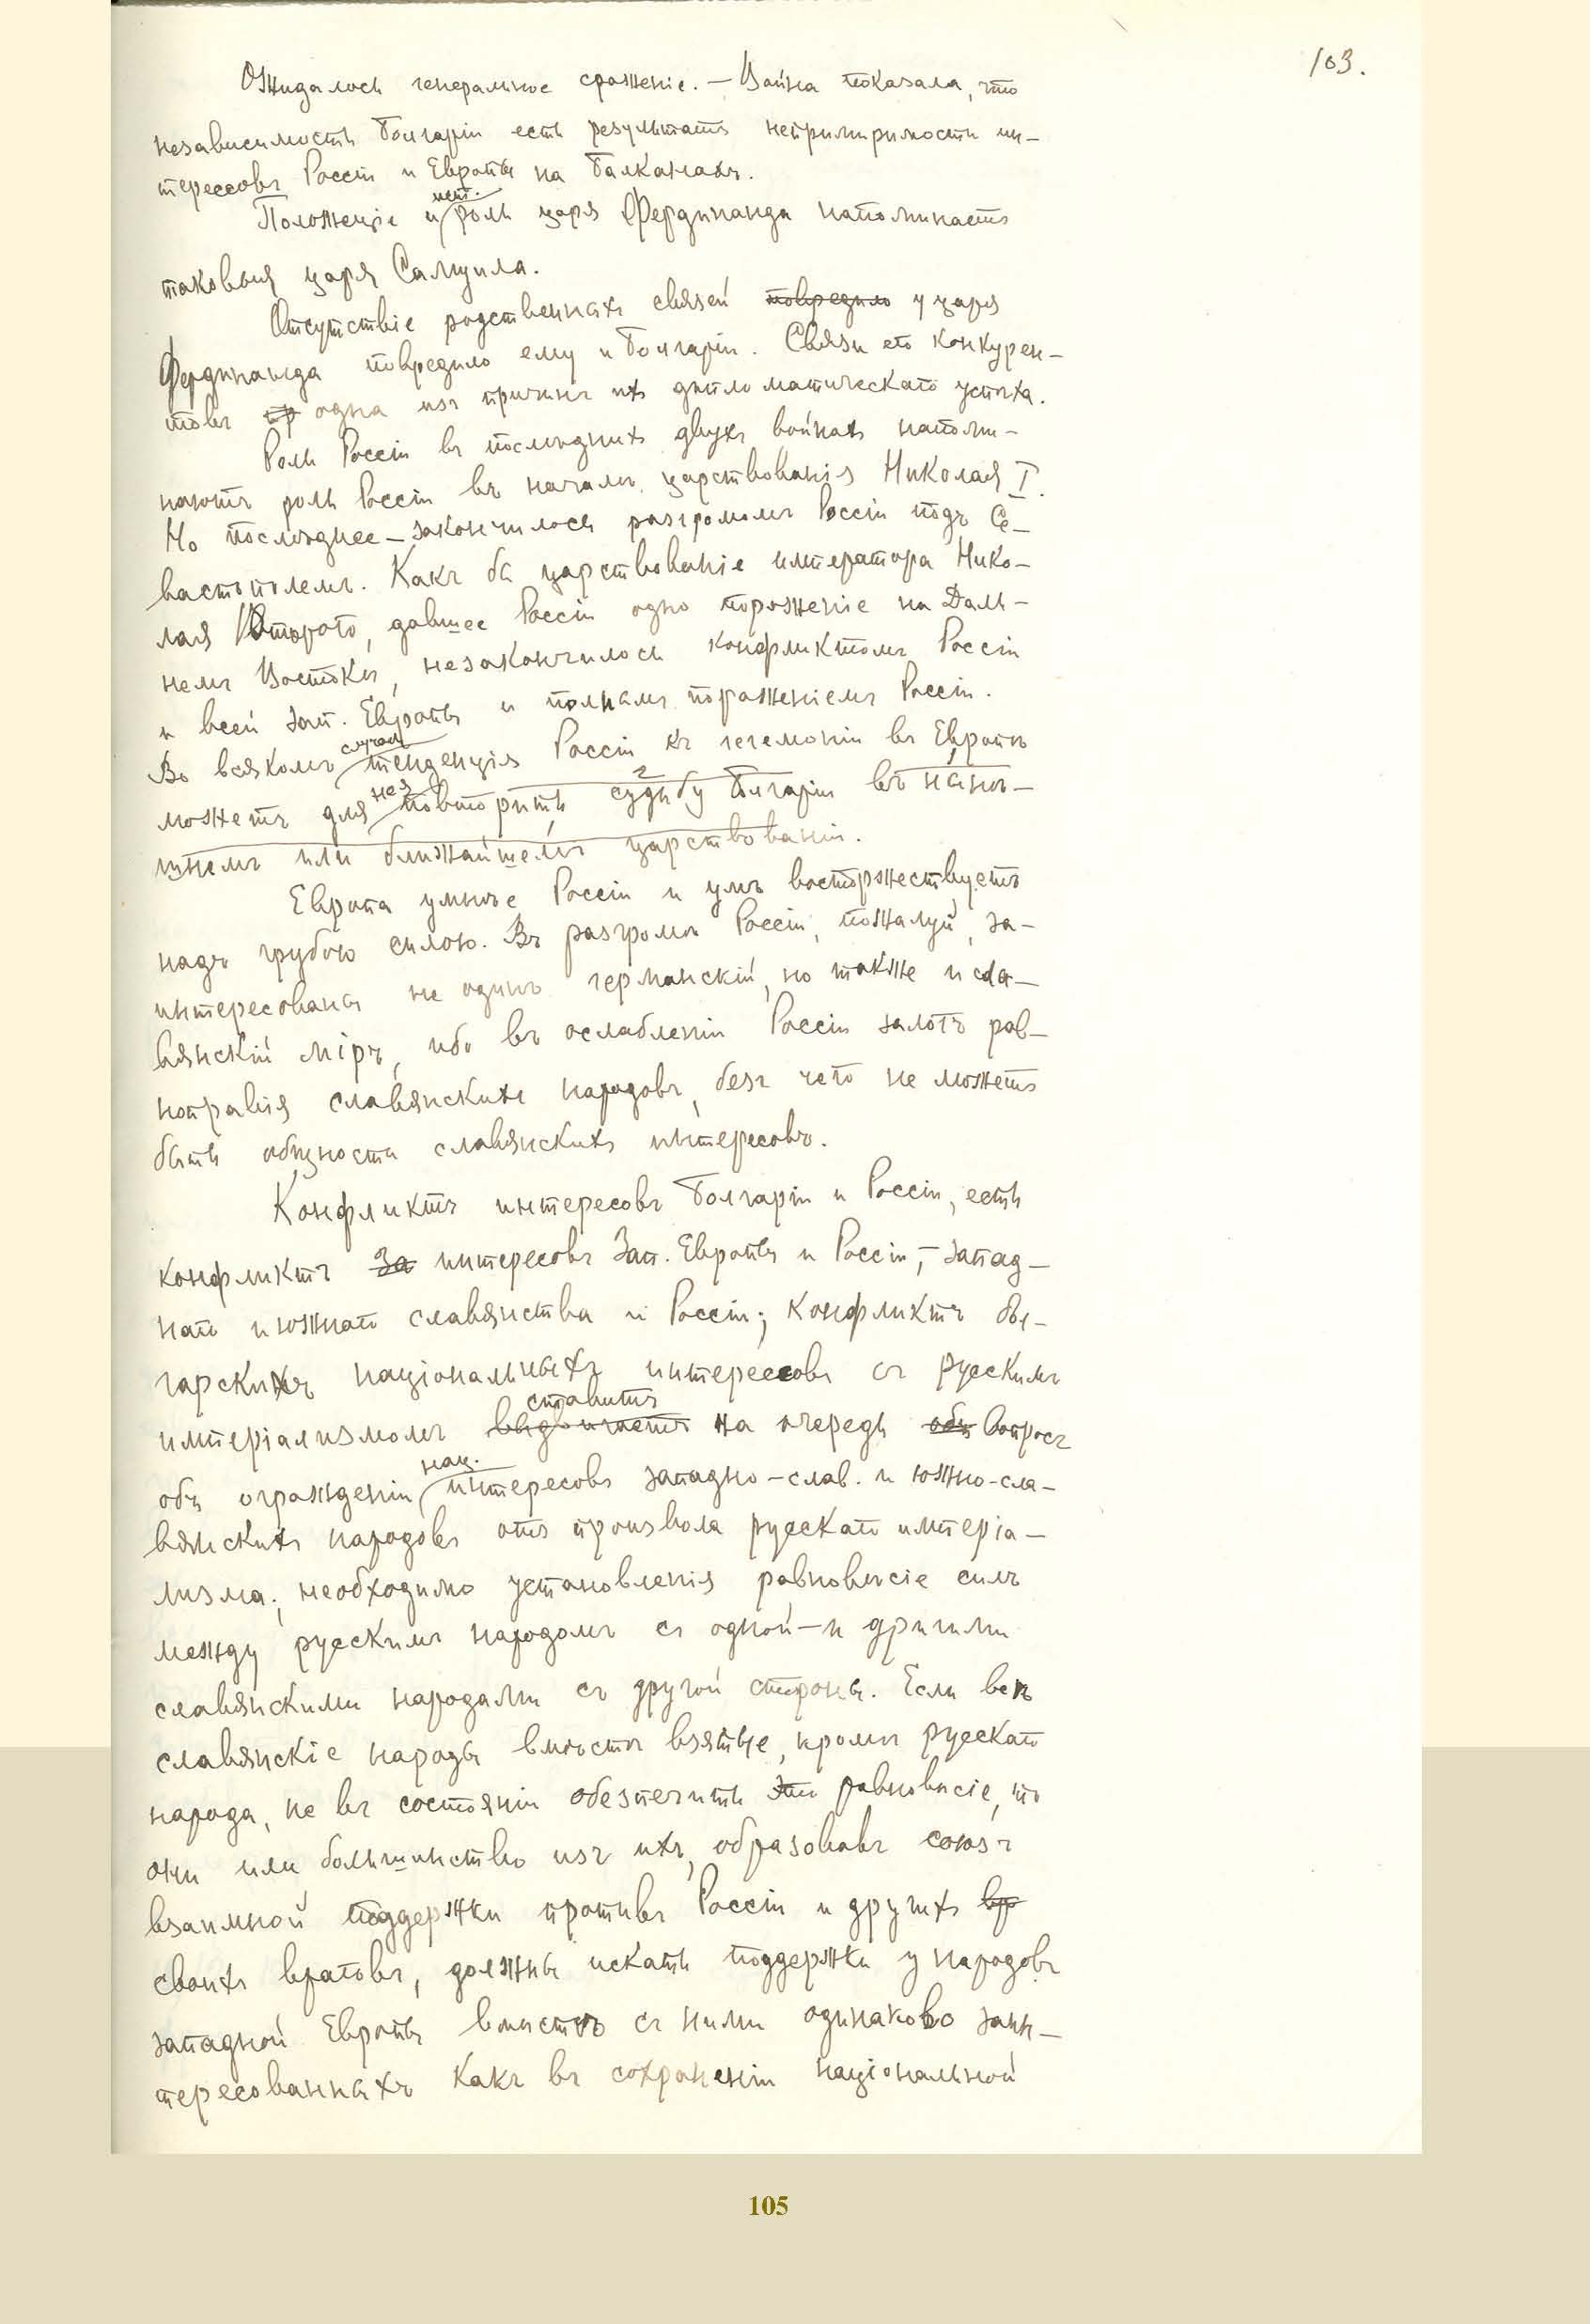 103.
Ожидалось генеральное сраженіе. — Война показала, что
независимость Болгаріи есть результатъ непримиримости ин-
терессовъ Россіи и Европы на Балканахъ.
ист.
Положеніе и роль царя Фердинанда напоминаетъ
таковыя царя Самуила.
Отсутствіе родственныхъ связей повредило у царя
Фердинанда повредило ему и Болгаріи. Связи его конкурен-
товъ пр одна изъ причинъ ихъ дипломатическаго успѣха.
Роль Россіи въ послѣднихъ двухъ войнахъ напоми-
наютъ роль Россіи въ началѣ царствованія Николая I.
Но послѣднее — закончилось разгромомъ Россіи подъ Се-
вастополемъ. Какъ бы царствованіе императора Нико-
лая Второго, давшее Россіи одно пораженіе на Даль-
немъ Востокѣ, незакончилось конфликтомъ Россіи
и всей зап. Европы и полнымъ пораженіемъ Россіи.
случаѣ
Во всякомъ тенденція Россіи къ гегемоніи въ Европѣ
нея 2 1
можетъ для повторить судьбу Болгаріи въ нынѣ-
шнемъ или ближайшемъ царствованіи.
Европа умнѣе Россіи и умъ восторжествуетъ
надъ грубою силою. Въ разгромѣ Россіи, пожалуй, за-
интересованы не одинъ германскій, но также и сла-
вянскій міръ, ибо въ ослабленіи Россіи залогъ рав-
ноправія славянскихъ народовъ, безъ чего не можетъ
быть общности славянскихъ интересовъ.
Конфликтъ интересовъ Болгаріи и Россіи, есть
конфликтъ За интересовъ Зап. Европы и Россіи, — запад-
наго и южнаго славянства и Россіи; конфликтъ бъл-
гарскихъ національныхъ интересовъ съ русскимъ
ставитъ
имперіализмомъ выдвигаетъ на очередь объ вопросъ
нац.
объ огражденіи интересовъ западно-слав. и южно-сла-
вянскихъ народовъ отъ произвола русскаго имперіа-
лизма; необходимо установленія равновѣсіе силъ
между русскимъ народомъ съ одной — и другими
славянскими народами съ другой стороны. Если всѣ
славянскіе народы вмѣстѣ взятые, кромѣ русскаго
народа, не въ состояніи обезпечить это равновѣсіе, то
они или большинство изъ ихъ, образовавъ союзъ
взаимной поддержки противъ Россіи и другихъ вр
своихъ враговъ, должны искать поддержки у народовъ
западной Европы вмѣстѣ съ ними одинаково заин-
тересованныхъ какъ въ сохраненіи національной
105